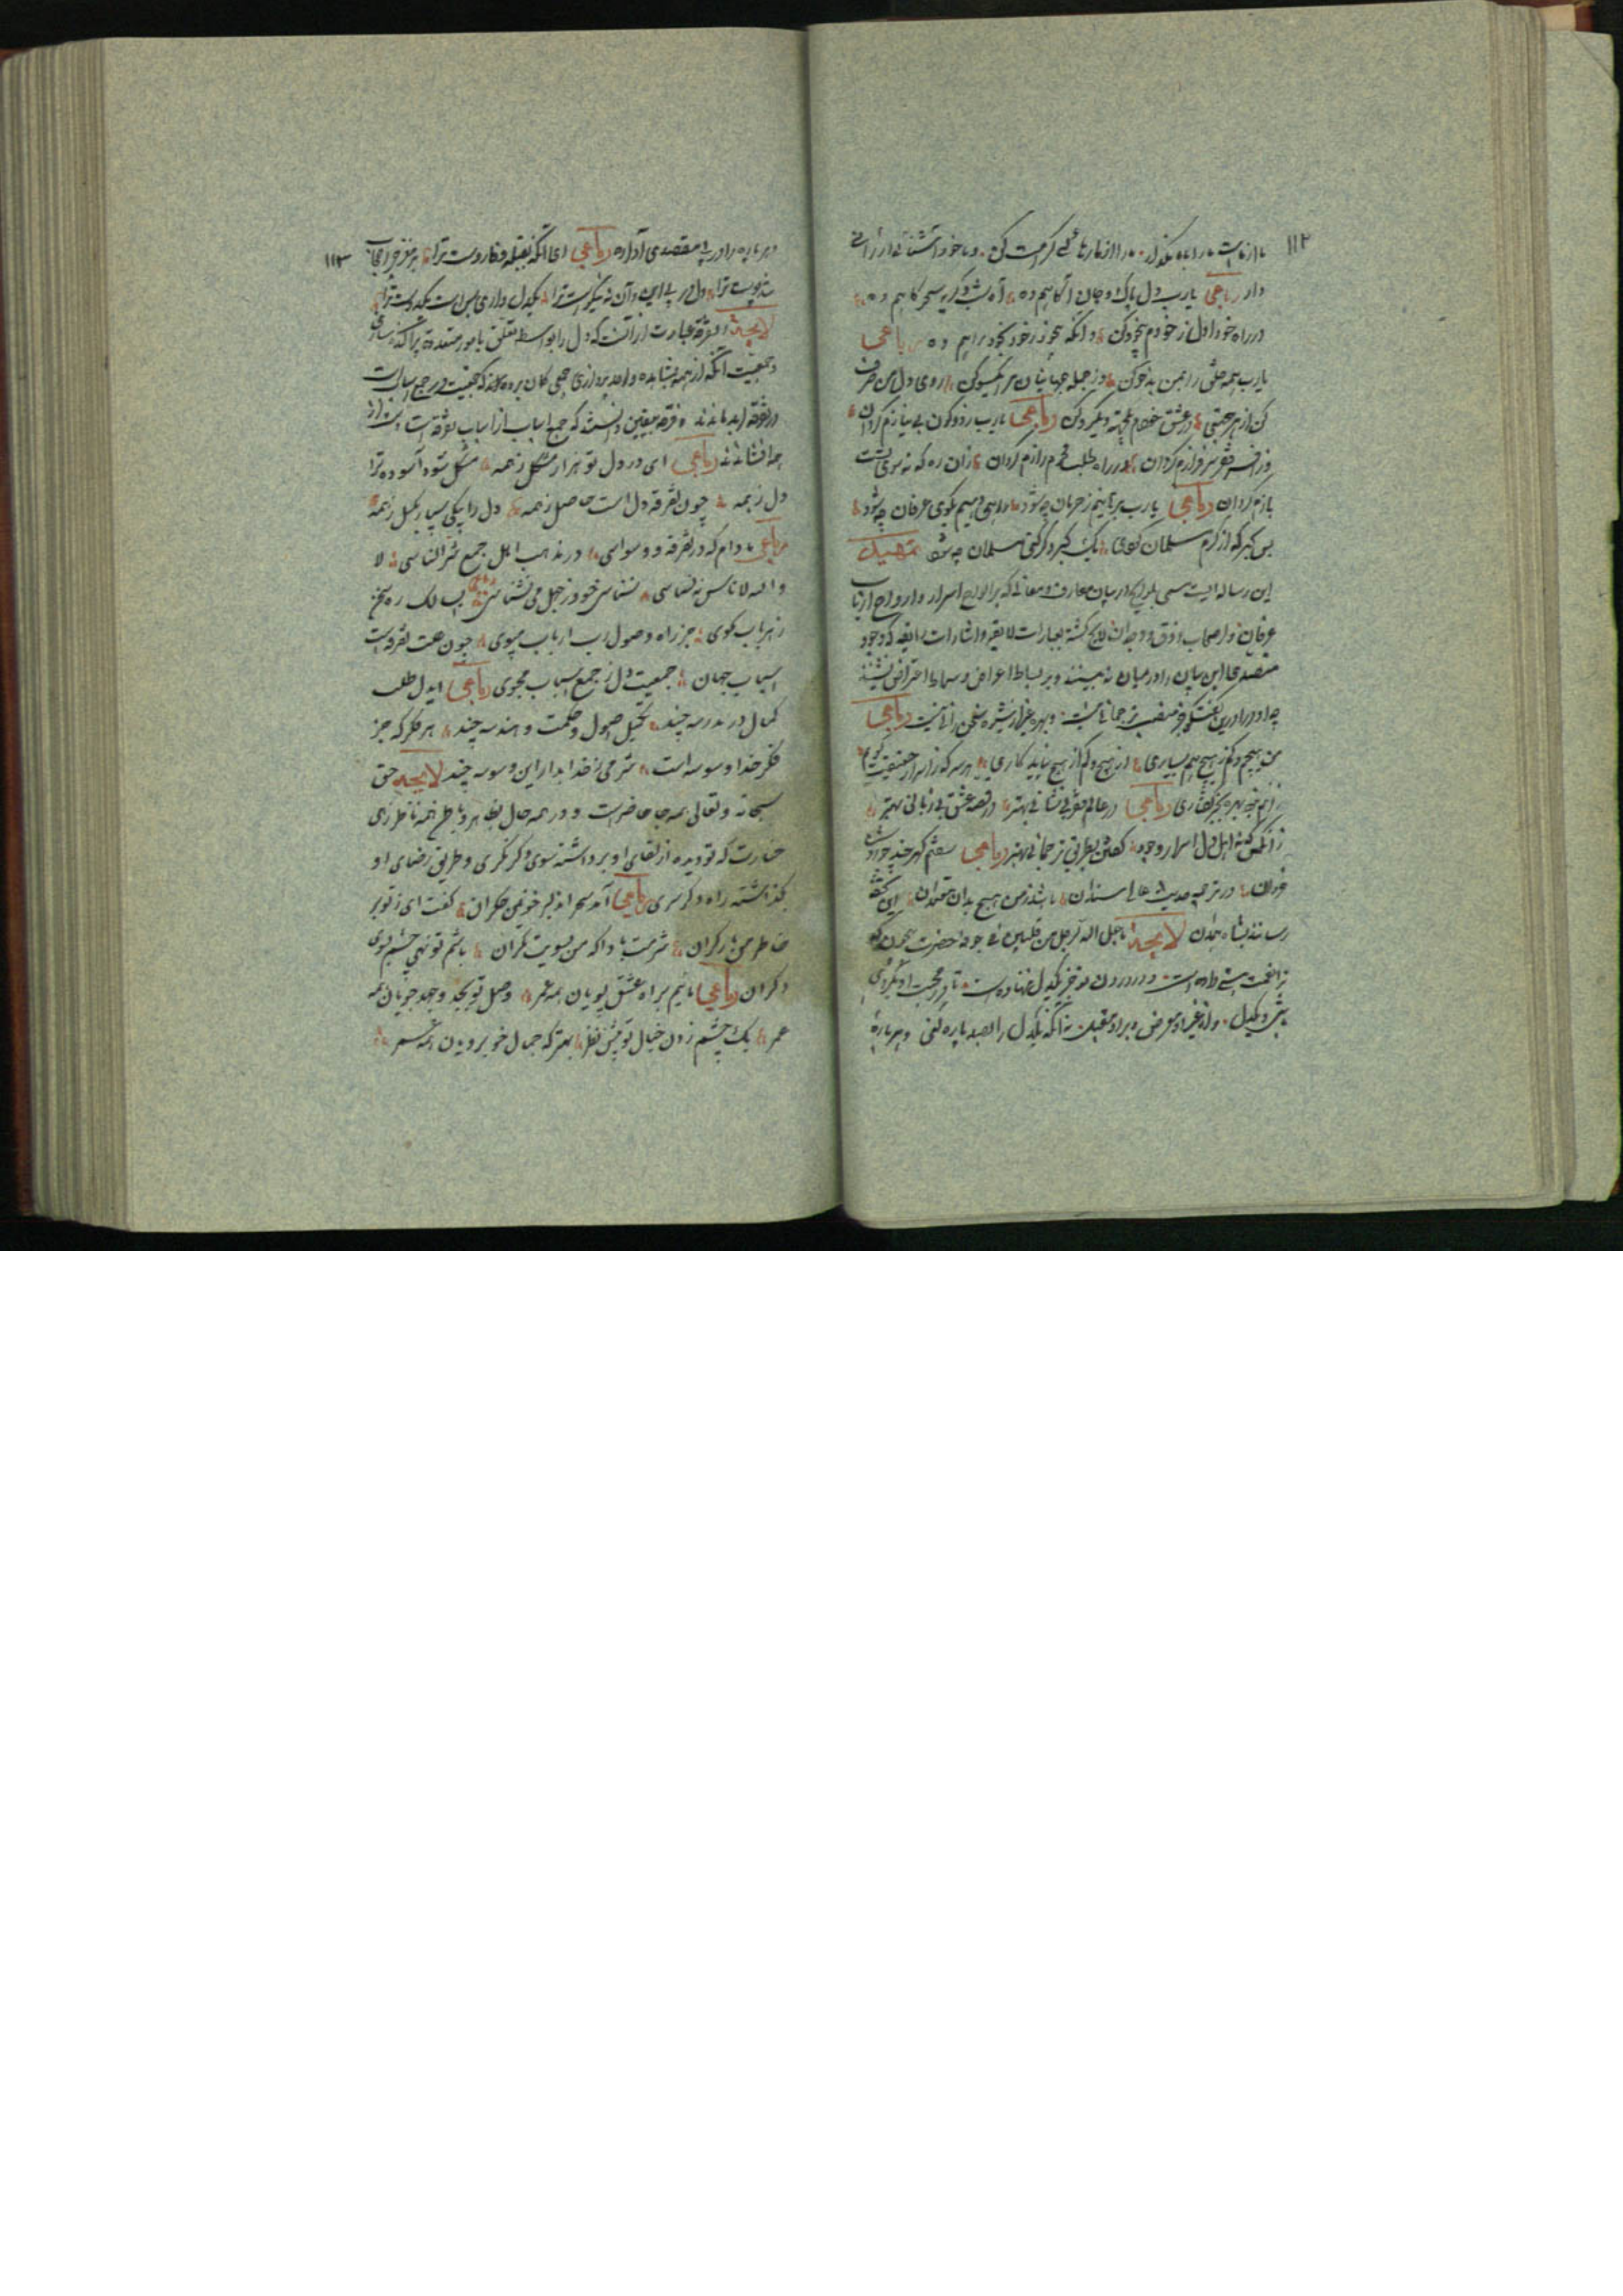 ۱۱۲
ما از ماست ما را بما مگذار ما را از ما رهائی کرامت کن و با خود آشنائی ارزانی
دار رباعی یارب دل پاک و جان آگاهم ده آه شب و گریه سحرگاهم ده
در راه خود اول ز خودم بیخود کن وانگه بیخود ز خود بخود راهم ده رباعی
یارب همه خلق را بمن بدخو کن وز جمله جهانیان مرا یکسو کن روی دل من صرف
کن از هر جهتی در عشق خودم یکجهت و یکرو کن رباعی یارب ز دو کون بی نیازم گردان
وز افسر فقر سرفرازم گردان در راه طلب محرم رازم گردان زان ره که نه سوی تست
بازم گردان رباعی یارب برهانیم ز حرمان چه شود راهی دهیم بکوی عرفان چه شود
بس گبر که از کرم مسلمان کردی یک گبر دگر کنی مسلمان چه شود تمهید
این رساله ایست مسمی بلوایح در بیان معارف و معانی که بر الواح اسرار و ارواح ارباب
عرفان و اصحاب ذوق و وجدان لایح گشته بعبارات لایقه و اشارات رایقه که وجود
متصدی این بیان را در میان نه بینند و بر بساط اعراض و سماط اعتراض ننشینند
چه او را درین گفتگو جز منصب ترجمانی نیست و بهره غیر از شیوه سخن رانی نیست رباعی
من هیچم و کم ز هیچ هم بسیاری از هیچ و کم از هیچ نیاید کاری هر سر که ز اسرار حقیقت گویم
زانم نبود بهره بجز گفتاری رباعی در عالم فقر بی نشانی بهتر در قصه عشق بی زبانی بهتر
زانکس که نه اهل ذوق اسرار وجود گفتن بطریق ترجمانی بهتر رباعی سفتم گهری چند چو روشن
خردان در ترجمه حدیث عالی سندان باشد ز من هیچ مدان معتمدان این تحفه
رسانند بشاه همدان لایحه ما جعل الله لرجل من قلبین فی جوفه حضرت بیچون که
ترا نعمت هستی داده است در درون تو جز یکدل ننهاده است تا در محبت او یکروی
باشی و یکدل و از غیر او معرض و بر او مقبل نه آنکه یکدل را بصد پاره کنی و هر پاره
۱۱۳
و هر پاره را در پی مقصدی آواره رباعی ای آنکه بقبله وفا روست ترا بر مغز چرا حجاب
شد پوست ترا دل در پی این و آن نه نیکوست ترا یکدل داری بس است یکدوست ترا
لایحه تفرقه عبارت از آنست که دل را بواسطه تعلق بامور متعدده پراکنده سازی
و جمعیت آنکه از همه بمشاهده واحد پردازی جمعی گمان بردند که جمعیت در جمع اسباب است
در تفرقه ابد ماندند و فرقه بیقین دانستند که جمع اسباب از اسباب تفرقه است دست از
همه افشاندند رباعی ای در دل تو هزار مشکل ز همه مشکل شود آسوده ترا
دل ز همه چون تفرقه دل است حاصل ز همه دل را بیکی سپار و بگسل ز همه
رباعی مادام که در تفرقه و وسواسی در مذهب اهل جمع شر الناسی لا
والله لا ناس نه نسناسی نسناسی خود ز جهل می نشناسی رباعی ای سالک ره سخن
ز هر باب مگوی جز راه وصول رب ارباب مپوی چون علت تفرقه است
اسباب جهان جمعیت دل ز جمع اسباب مجوی رباعی ایدل طلب
کمال در مدرسه چند تکمیل اصول و حکمت و هندسه چند هر فکر که جز
ذکر خدا وسوسه است شرمی ز خدا بدار این وسوسه چند لایحه حق
سبحانه و تعالی همه جا حاضرست و در همه حال بظاهر و باطن همه ناظر زهی
خسارت که تو دیده از لقای او برداشته سوی دگر نگری و طریق رضای او
بگذاشته راه دگر سپری رباعی آمد سحر آن دلبر خونین جگران گفت ای ز تو بر
خاطر من بار گران شرمت بادا که من بسویت نگران باشم تو نهی چشم بسوی
دگران رباعی مائیم براه عشق پویان همه عمر وصل تو بجد و جهد جویان همه
عمر یک چشم زدن خیال تو پیش نظر بهتر که جمال خوبرویان همه عمر